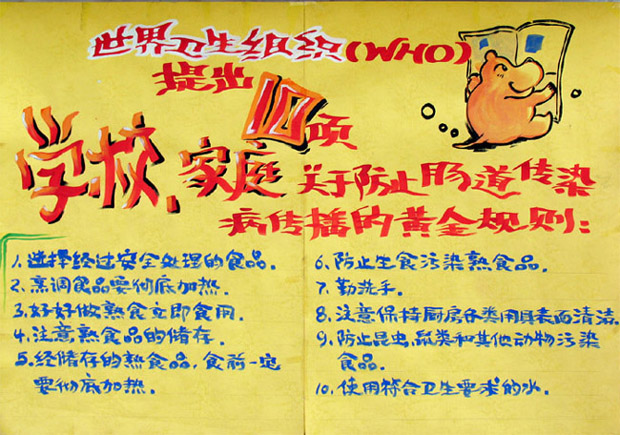 世界卫生组织(WHO)
提出10项
学校、家庭关于防止肠道传染
病传播的黄金规则:
1.选择经过安全处理的食品.
2.烹调食品要彻底加热.
3.好好做熟食立即食用.
4.注意熟食品的储存.
5.经储存的熟食品,食前一定
要彻底加热.
6.防止生食污染熟食品.
7.勤洗手.
8.注意保持厨房各类用具表面清洁.
9.防止昆虫,鼠类和其他动物污染
食品.
10.使用符合卫生要求的水.